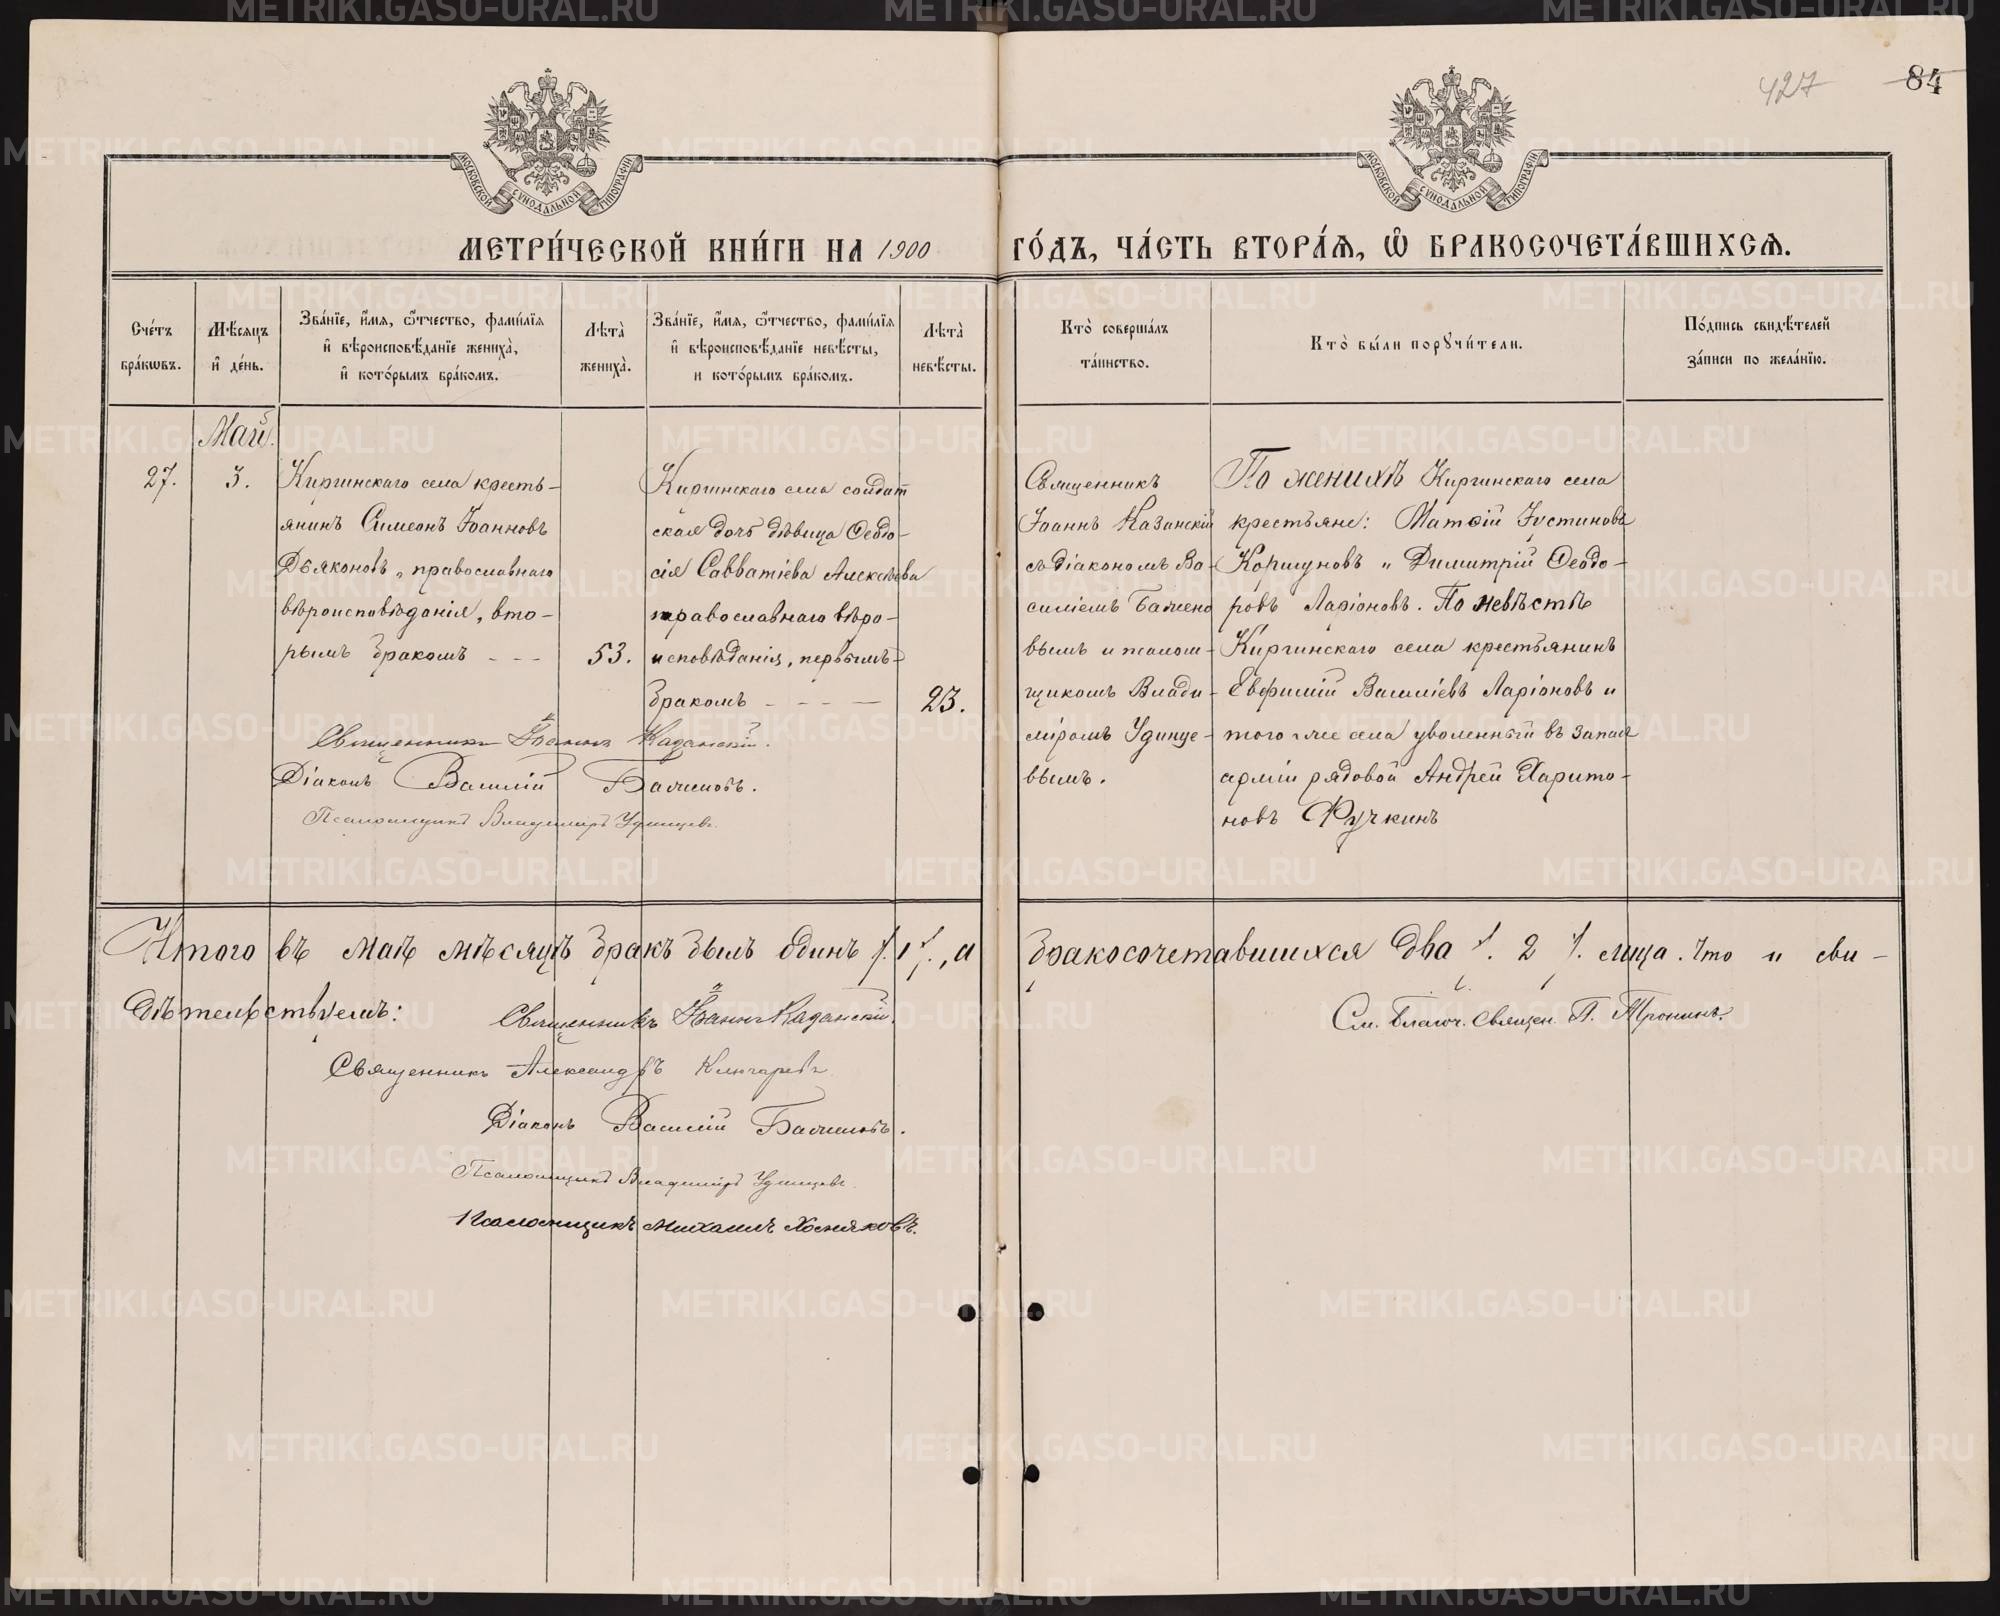 427
84
МОСКОВСКОЙ СѴНОДАЛЬНОЙ ТИПОГРАФІИ
МОСКОВСКОЙ СѴНОДАЛЬНОЙ ТИПОГРАФІИ
МЕТРИ́ЧЕСКОЙ КНИ́ГИ НА 1900 ГО́ДЪ, ЧА́СТЬ ВТОРА́Я, Ѽ БРАКОСОЧЕТА́ВШИХСЯ.
Сче́тъ
бра́кωвъ.
Мѣ́сяцъ
и҆ де́нь.
Зва́нїе, и҆́мя, ѻ҆́тчество, фами́лїя
и҆ вѣроисповѣ́данїе жениха̀,
и҆ кото́рымъ бра́комъ.
Лѣта̀
жениха̀.
Зва́нїе, и҆́мя, ѻ҆́тчество, фами́лїя
и҆ вѣроисповѣ́данїе невѣ́сты,
и кото́рымъ бра́комъ.
Лѣта̀
невѣ́сты.
Кто̀ соверша́лъ
та́инство.
Кто̀ бы́ли порꙋчи́тели.
По́дпись свидѣ́телей
за́писи по жела́нїю.
Май.
27.
3.
Киргинскаго села кресть-
янинъ Симеонъ Іоанновъ
Дьяконовъ, православнаго
вѣроисповѣданія, вто-
рымъ бракомъ - - -
53.
Киргинскаго села солдат
ская дочь дѣвица Ѳеодо-
сія Савватіева Алексѣева
православнаго вѣро-
исповѣданія, первымъ-
бракомъ - - - -
23.
Священникъ
Іоаннъ Казанскій
съ діакономъ Ва-
силіемъ Бажено
вымъ и псалом-
щикомъ Влади-
міромъ Удинце-
вымъ.
По женихѣ Киргинскаго села
крестьяне: Матѳій Іустиновъ
Коршуновъ и Димитрій Ѳеодо-
ровъ Ларіоновъ. По невѣстѣ
Киргинскаго села крестьянинъ
Евѳимій Василіевъ Ларіоновъ и
того же села уволенный въ запасъ
арміи рядовой Андрей Харито-
новъ Фучкинъ
Священникъ Іоаннъ Казанскій.
Діаконъ Василій Баженовъ.
Псаломщикъ Владимиръ Удинцевъ.
Итого въ маѣ мѣсяцѣ бракъ былъ одинъ /. 1 /., а бракосочетавшихся два /. 2 /. лица. Что и сви-
дѣтельствуемъ:
Священникъ Іоаннъ Казанскій.
См. Благоч. Священ. П. Тронинъ.
Священникъ Александръ Ключаревъ
Діаконъ Василій Баженовъ.
Псаломщикъ Владиміръ Удинцевъ.
Псаломщикъ Михаилъ Хомяковъ.
METRIKI.GASO-URAL.RU